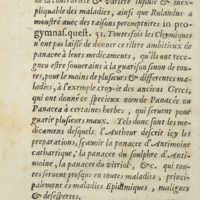 de la contrarieté & varieté infinie & inex-
pliquable des maladies, ainsi que Rulandus a
monstré avec des raisons peremptoires in pro-
gymnas. quæst. 51. Toutesfois les Chymiques
n'ont pas laissé de donner ce tiltre ambitieux de
panacée à leurs medicaments, qui ils ont reco-
gneu estre souverains à la guarison sinon de tou-
tes, pour le moins de plusieurs & differentes ma-
ladies, à l'exemple croy-ie des anciens Grecs,
qui ont donné ce specieux nom de Panacée ou
Panacea à certaines herbes, qui servent pour
guarir plusieurs maux. Tels donc sont les me-
dicamens desquels l'Autheur descrit icy les
preparations, sçavoir la panacée d'Antimoine
cathartique, la panacée du soulphre d'Anti-
moine, la panacée de vitriol, &c. qui tou-
tes servent presque en toutes maladies, princi-
palement és maladies Epidemiques, malignes
& desesperees.